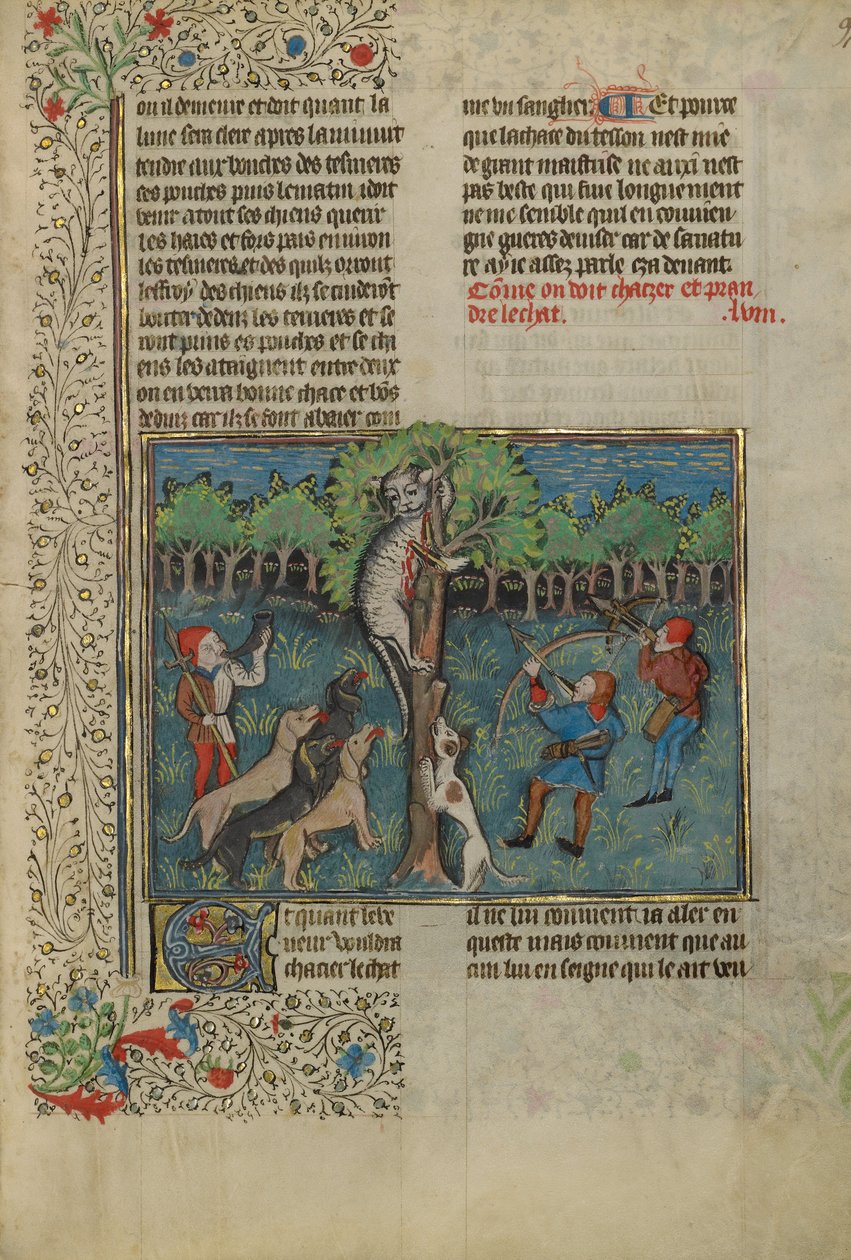 ou il demeure et doit quant la
lune sera clere apres la minuit
tendre aux bouches des tesnieres
ses pouches puis le matin i doit
venir a tout ses chiens querir
les haies et fors pais environ
les tesnieres et des quilz orront
leffroy des chiens ilz se cuideront
bouter dedenz les tenieres et se
ront prins es pouches et se chi
ens les ataignent entre deux
on en verra bonne chace et bõs
deduiz car ilz se font abaier com
me vn sanglier Et pource
que la chace du tesson nest mie
de grant maistrise ne auxi nest
pas beste qui fuie longuement
ne me semble quil en convien
gne gueres deviser car de sa natu
re ay ie assez parle cza devant.
Cõme on doit chaczer et pran
dre le chat. .lviii.
Et quant le ve
neur vouldra
chacier le chat
il ne lui convient ia aler en
queste mais convient que au
cun lui en seigne qui le ait veu